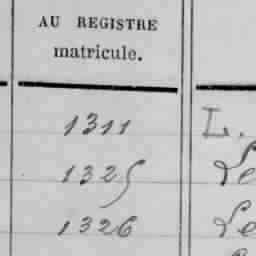 AU REGISTRE
matricule.
1311 L.
1325 Le
1326 Le